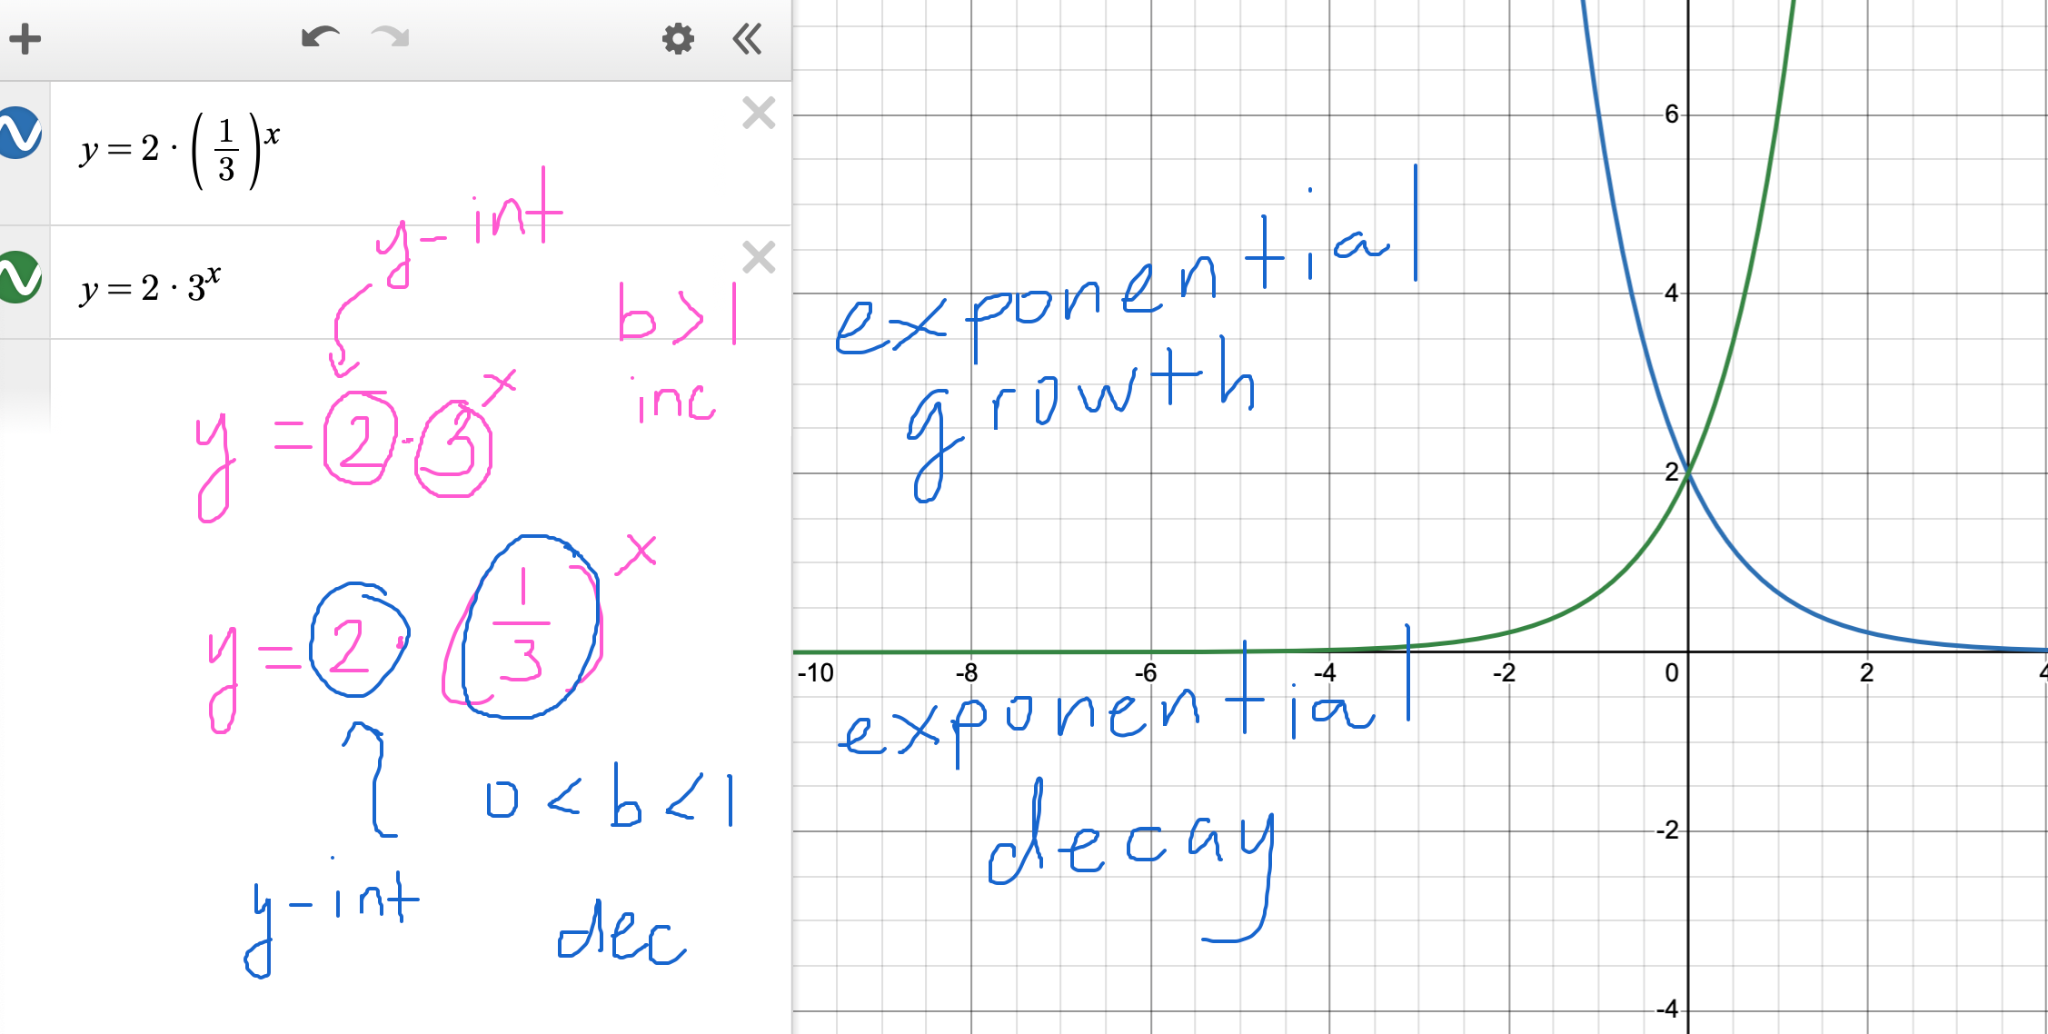 y = 2 · (1/3)^x
y = 2 · 3^x
y-int
b > 1
inc
y = 2 · 3^x
y = 2 · (1/3)^x
0 < b < 1
y-int
dec
exponential
growth
exponential
decay
6
4
2
-10 -8 -6 -4 -2 0 2 4
-2
-4